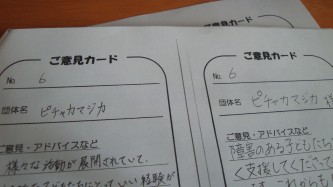 ご意見カード
No. 6
団体名 ピチャカマジカ
ご意見・アドバイスなど
様々な活動が展開されていて、
ご意見カード
No. 6
団体名 ピチャカマジカ
ご意見・アドバイスなど
障害のある子どもたち
く支援してくださ